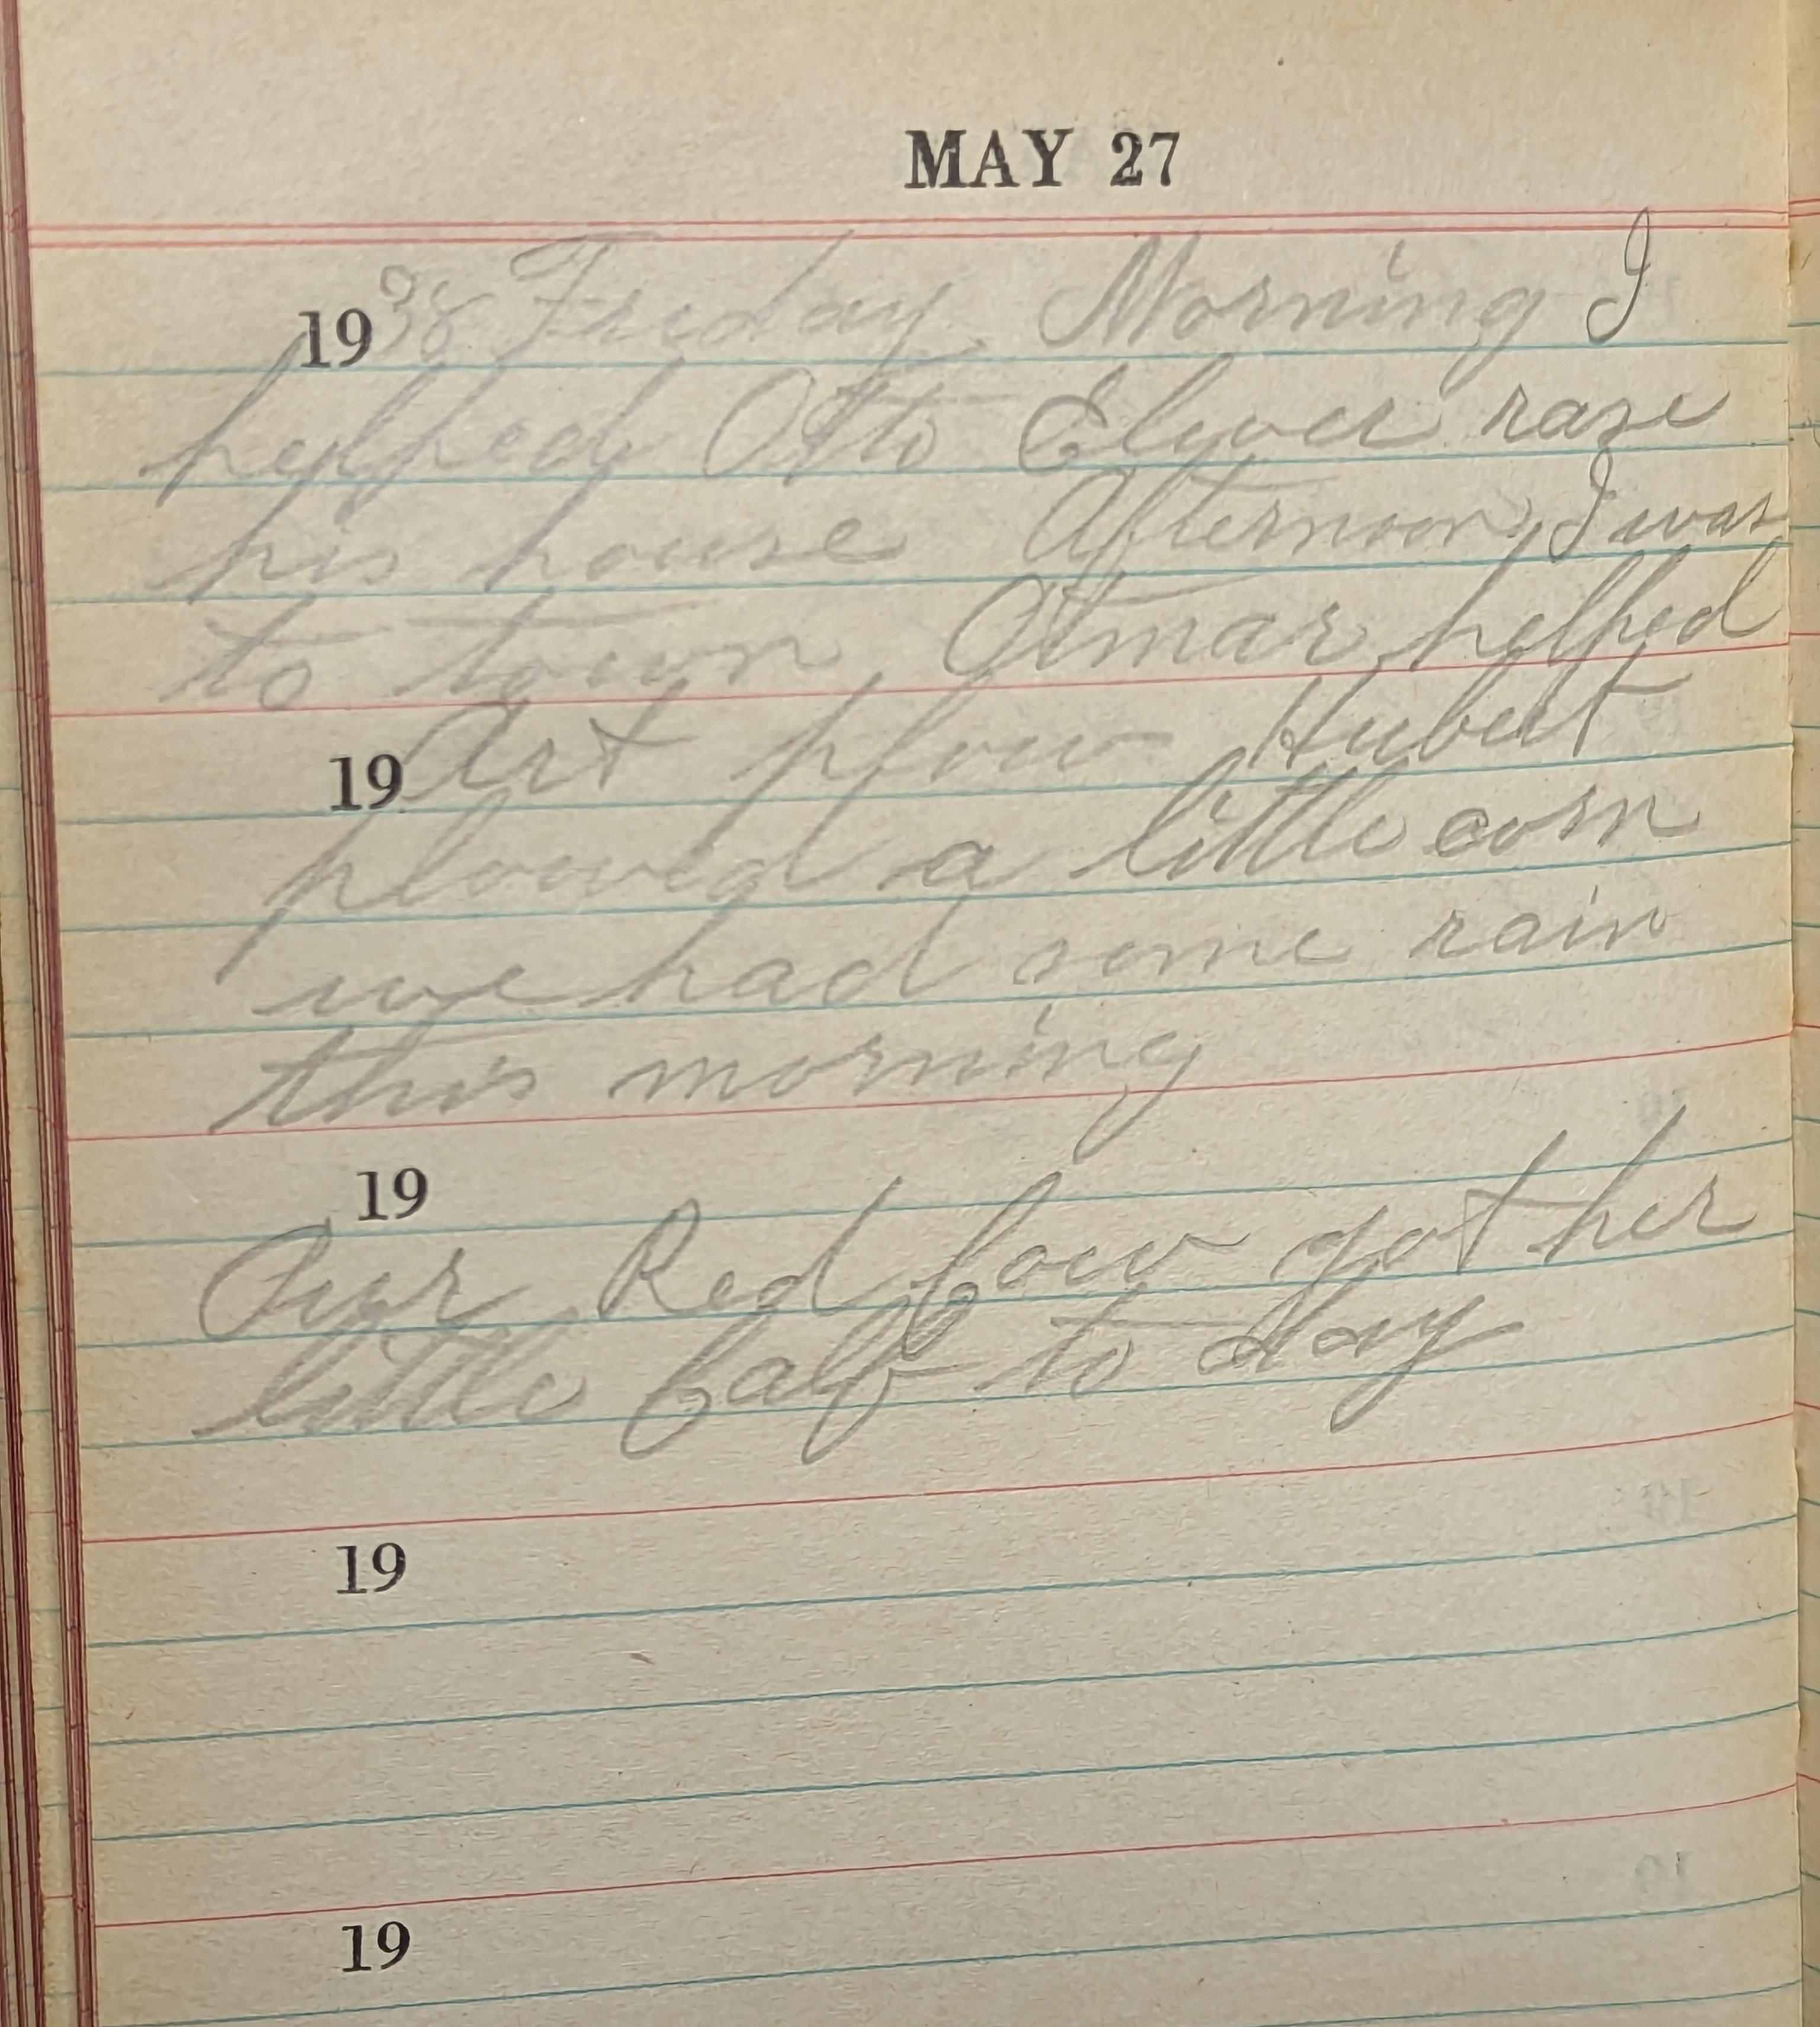 MAY 27
1938 Friday. Morning I
helped Otto rase
his house Afternoon I was
to town. Otmar helped
19 Art plow Hubert
plowed a little corn
we had some rain
this morning
19
Our Red Cow got her
little Calf to day
19
19